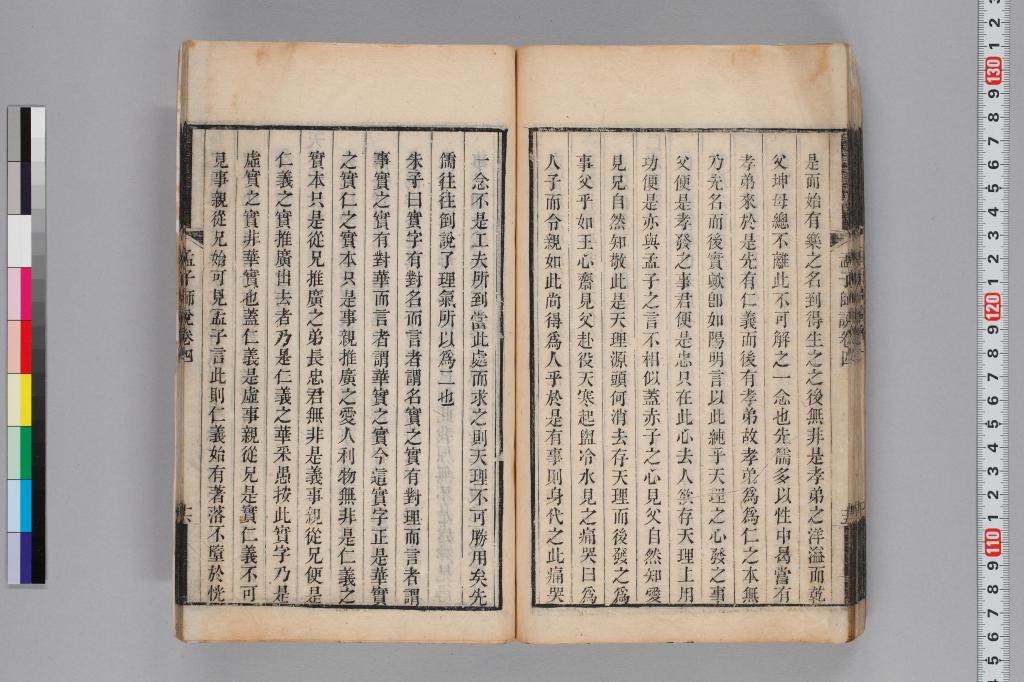 是而始有樂之名到得生之之後無非是孝弟之洋溢而乾
父坤母總不離此不可解之一念也先儒多以性中曷嘗有
孝弟來於是先有仁義而後有孝弟故孝弟爲爲仁之本無
乃先名而後實歟卽如陽明言以此純乎天理之心發之事
父便是孝發之事君便是忠只在此心去人欲存天理上用
功便是亦與孟子之言不相似蓋赤子之心見父自然知愛
見兄自然知敬此是天理源頭何消去存天理而後發之爲
事父乎如王心齋見父赴役天寒起盥冷水見之痛哭曰爲
人子而令親如此尚得爲人乎於是有事則身代之此痛哭
孟子師說卷四
一念不是工夫所到當此處而求之則天理不可勝用矣先
儒往往倒說了理氣所以爲二也
朱子曰實字有對名而言者謂名實之實有對理而言者謂
事實之實有對華而言者謂華實之實今這實字正是華實
之實仁之實本只是事親推廣之愛人利物無非是仁義之
實本只是從兄推廣之弟長忠君無非是義事親從兄便是
仁義之實推廣出去者乃是仁義之華采愚按此實字乃是
虛實之實非華實也蓋仁義是虛事親從兄是實仁義不可
見事親從兄始可見孟子言此則仁義始有著落不墮於恍
孟子師說卷四
十六
130
120
110